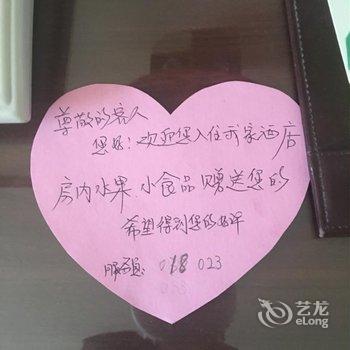 尊敬的客人
您好！欢迎您入住我家酒店
房内水果、小食品赠送您的
希望得到您的好评
服务员： 018 023
艺龙
eLong